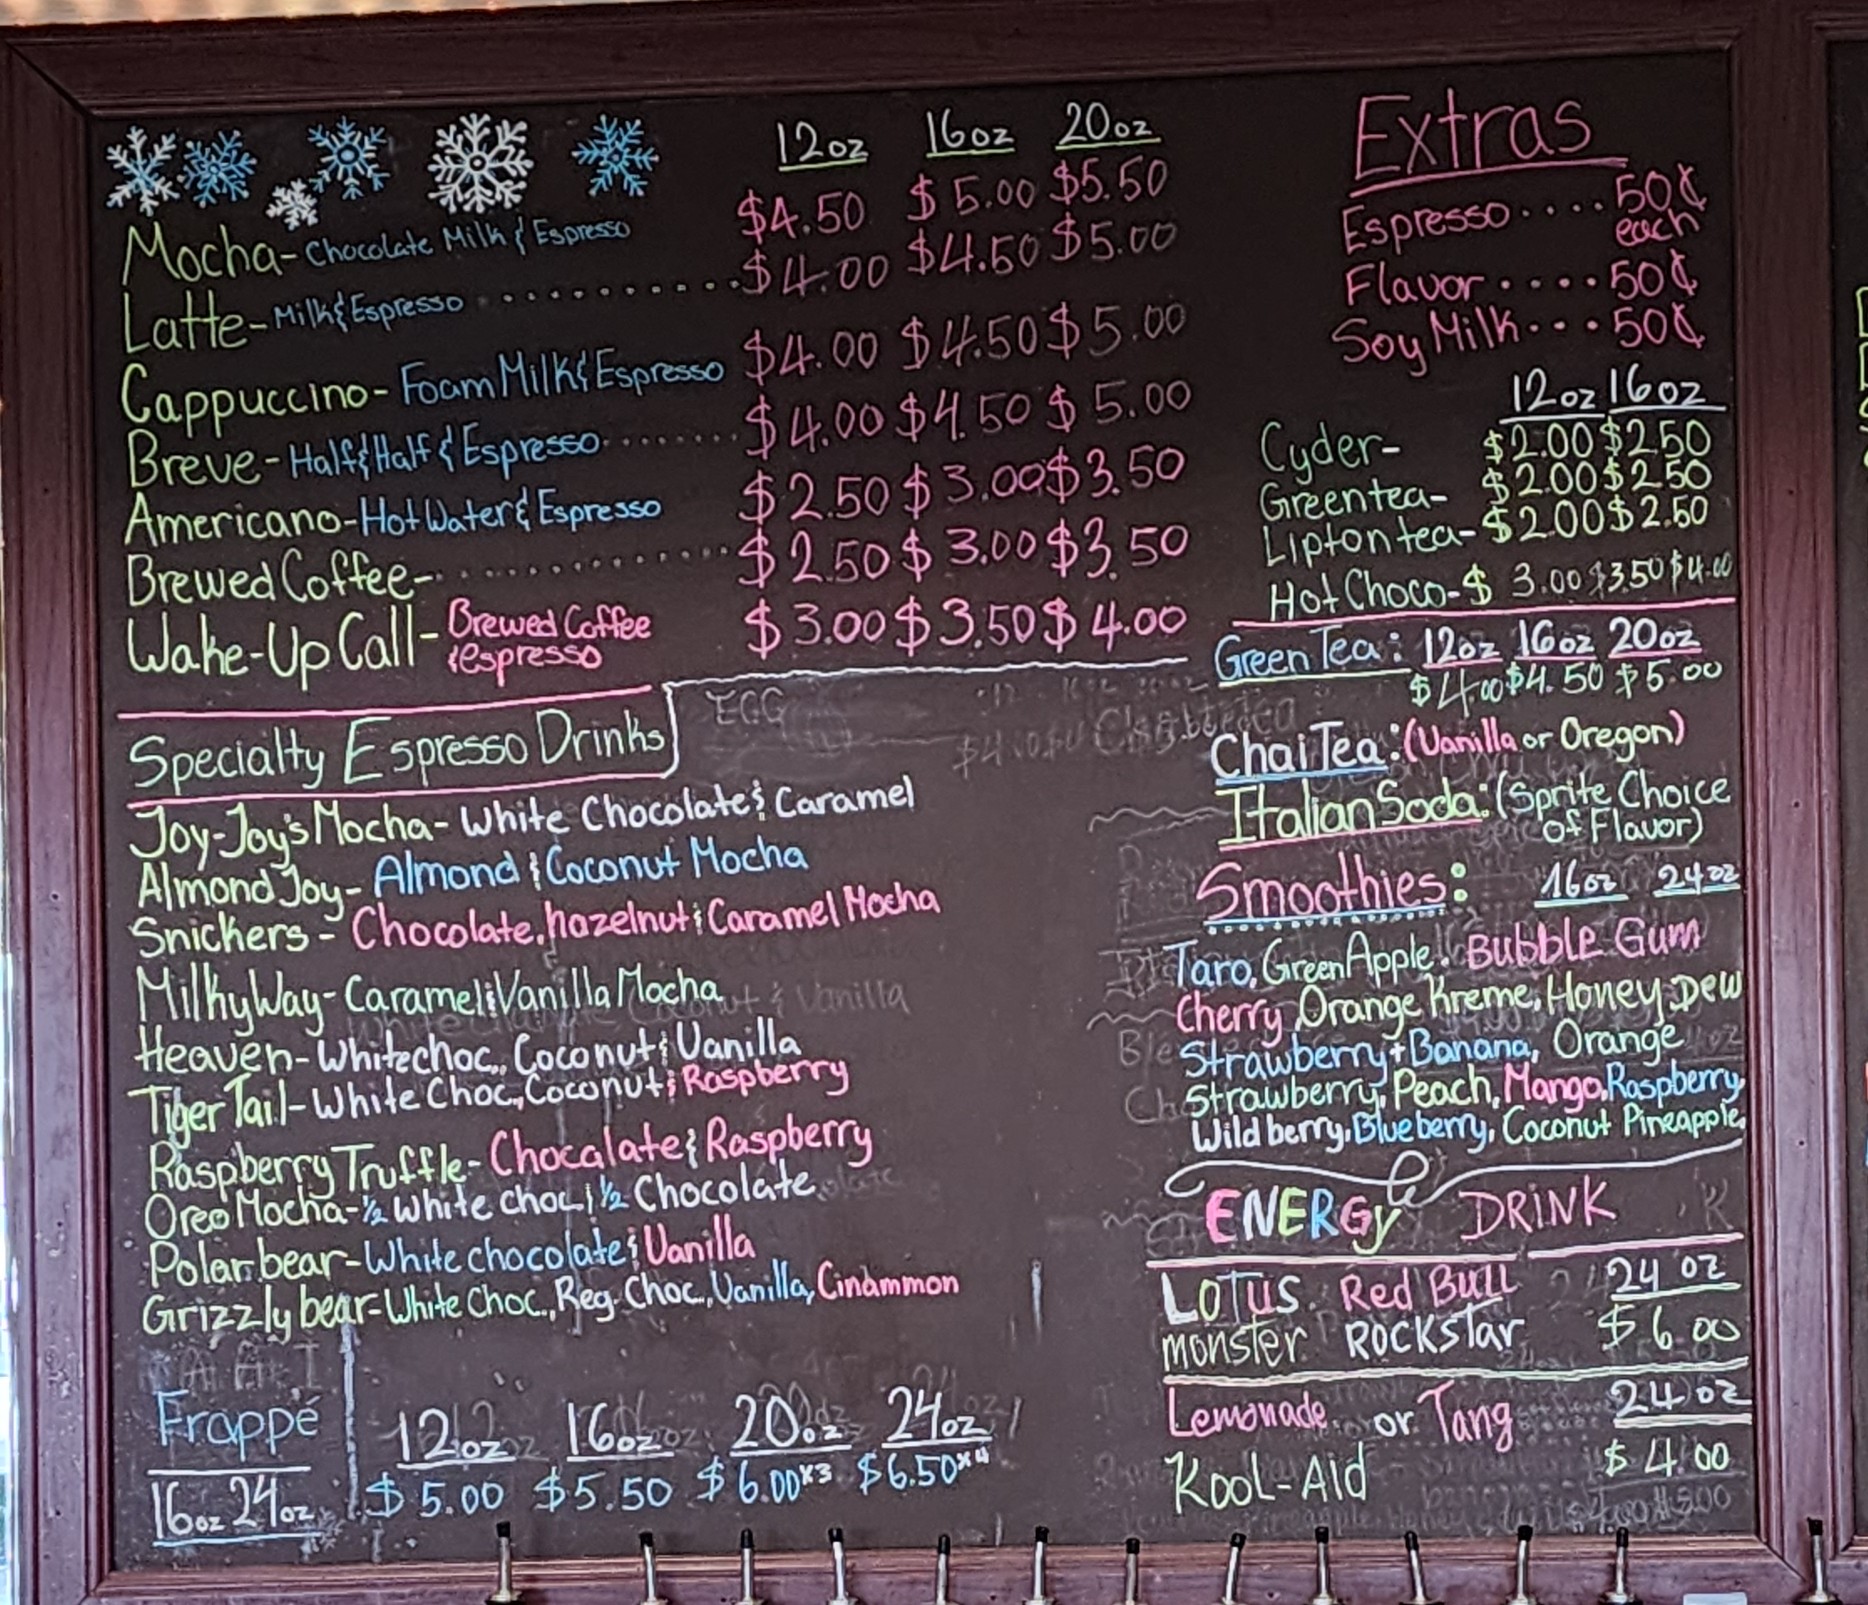 12oz 16oz 20oz
Mocha- Chocolate Milk & Espresso $4.50 $5.00 $5.50
Latte- Milk & Espresso ............ $4.00 $4.50 $5.00
Cappuccino- Foam Milk & Espresso $4.00 $4.50 $5.00
Breve- Half & Half & Espresso ........ $4.00 $4.50 $5.00
Americano- Hot Water & Espresso $2.50 $3.00 $3.50
Brewed Coffee- ............ $2.50 $3.00 $3.50
Wake-Up Call- Brewed Coffee $3.00 $3.50 $4.00
& espresso
Specialty Espresso Drinks
Joy-Joy's Mocha- White Chocolate & Caramel
Almond Joy- Almond & Coconut Mocha
Snickers- Chocolate, hazelnut & Caramel Mocha
Milky Way- Caramel & Vanilla Mocha
Heaven- Whitechoc., Coconut & Vanilla
Tiger Tail- White Choc., Coconut & Raspberry
Raspberry Truffle- Chocalate & Raspberry
Oreo Mocha- ½ White choc | ½ Chocolate
Polar bear- White chocolate & Vanilla
Grizzly bear- White Choc., Reg. Choc., Vanilla, Cinammon
Frappé 12oz 16oz 20oz 24oz
16oz 24oz $5.00 $5.50 $6.00 x3 $6.50 x4
Extras
Espresso .... 50¢
each
Flavor .... 50¢
Soy Milk ... 50¢
12oz 16oz
Cyder- $2.00 $2.50
Greentea- $2.00 $2.50
Lipton tea- $2.00 $2.50
Hot Choco- $3.00 $3.50 $4.00
Green Tea: 12oz 16oz 20oz
$4.00 $4.50 $5.00
Chai Tea: (Vanilla or Oregon)
Italian Soda: (Sprite Choice
of Flavor)
Smoothies: 16oz 24oz
Taro, Green Apple. Bubble Gum
Cherry Orange Kreme, Honey Dew
Strawberry + Banana, Orange
Strawberry, Peach, Mango, Raspberry,
Wild berry, Blueberry, Coconut Pineapple,
ENERGy DRINK
LOTUS Red Bull 24 oz
monster ROCKSTar $6.00
Lemonade or Tang 24 oz
Kool-Aid $4.00